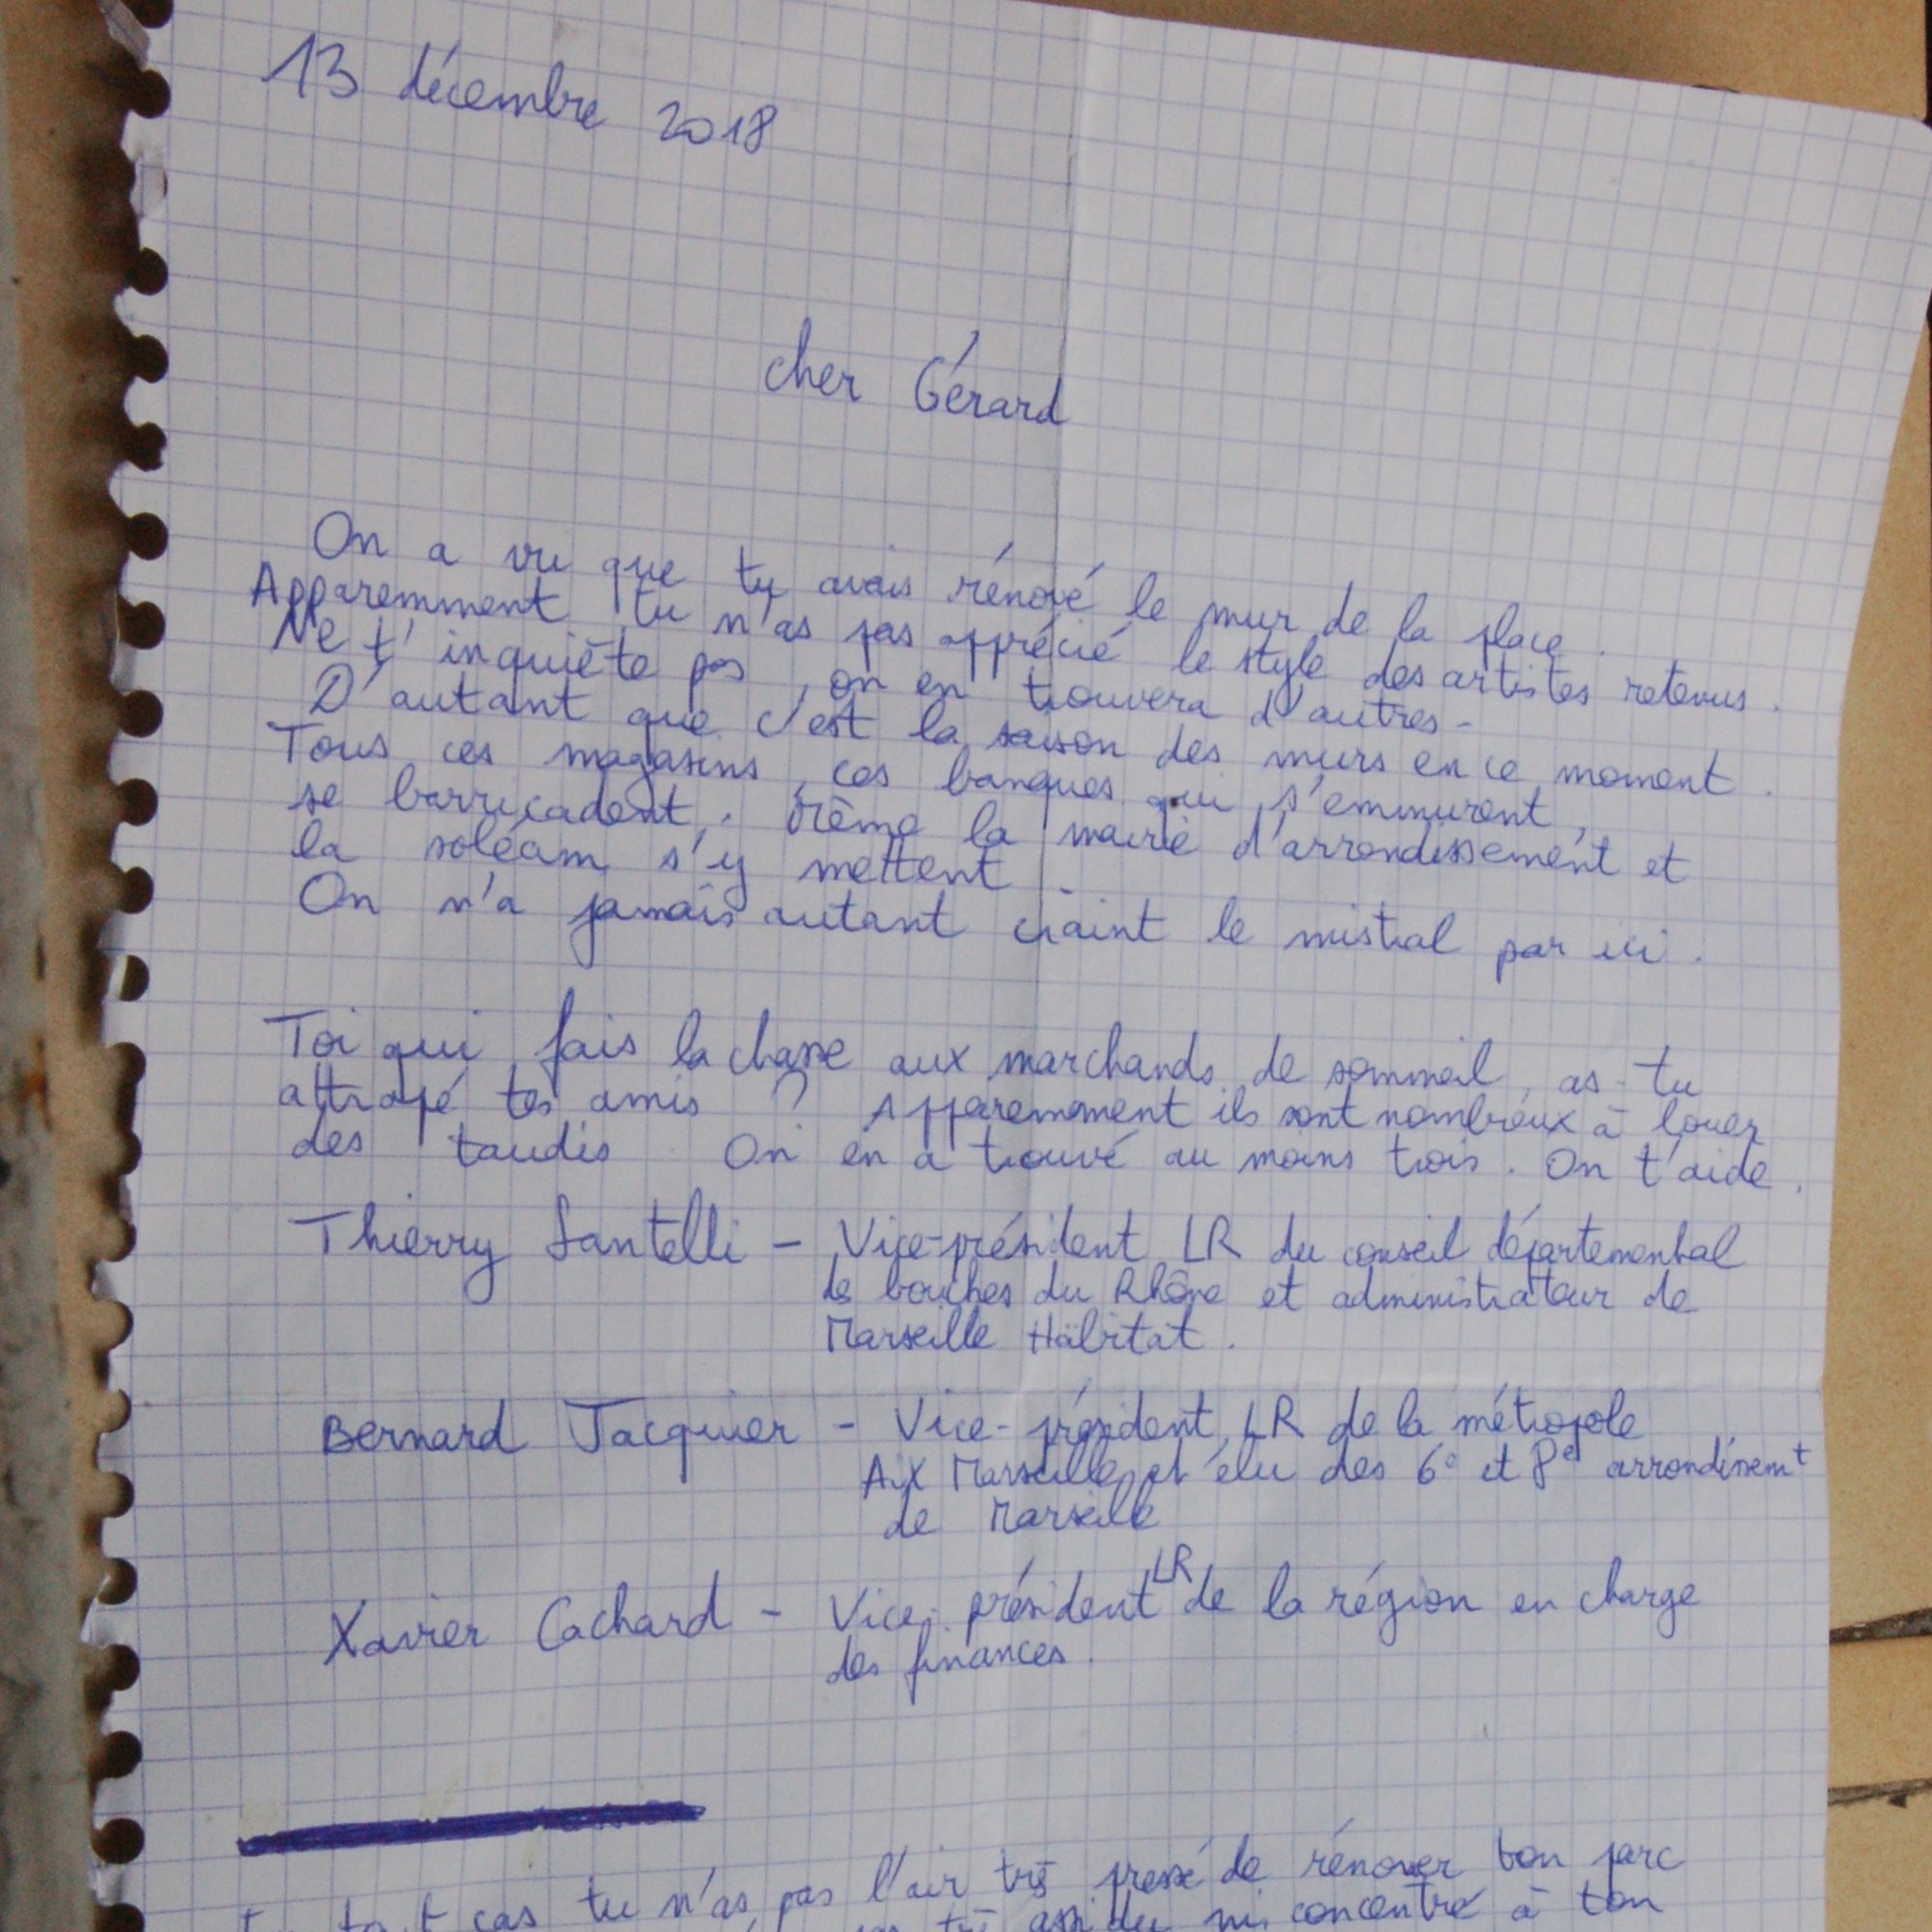 13 décembre 2018
cher Gérard
On a vu que tu avais rénové le mur de la place.
Apparemment tu n'as pas apprécié le style des artistes retenus.
Ne t'inquiète pas, on en trouvera d'autres.
D'autant que c'est la saison des murs en ce moment.
Tous ces magasins, ces banques qui s'emmurent,
se barricadent. Même la mairie d'arrondissement et
la soléam s'y mettent.
On n'a jamais autant craint le mistral par ici.
Toi qui fais la chasse aux marchands de sommeil, as-tu
attrapé tes amis ? Apparemment ils sont nombreux à louer
des taudis. On en a trouvé au moins trois. On t'aide.
Thierry Santelli - Vice-président LR du conseil départemental
des bouches du Rhône et administrateur de
Marseille Habitat.
Bernard Jacquier - Vice-président LR de la métropole
Aix Marseille et élu des 6e et 8e arrondissemt
de Marseille
Xavier Cachard - Vice-président LR de la région en charge
des finances.
En tout cas tu n'as pas l'air très pressé de rénover ton parc
pas très assidu ni concentré à ton